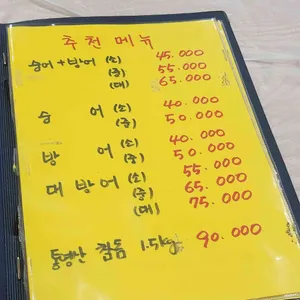 추천 메뉴
숭어+방어 (소) 45.000
(중) 55.000
(대) 65.000
숭 어 (소) 40.000
(중) 50.000
방 어 (소) 40.000
(중) 50.000
대 방어 (소) 55.000
(중) 65.000
(대) 75.000
통영산 참돔 1.5kg 90.000